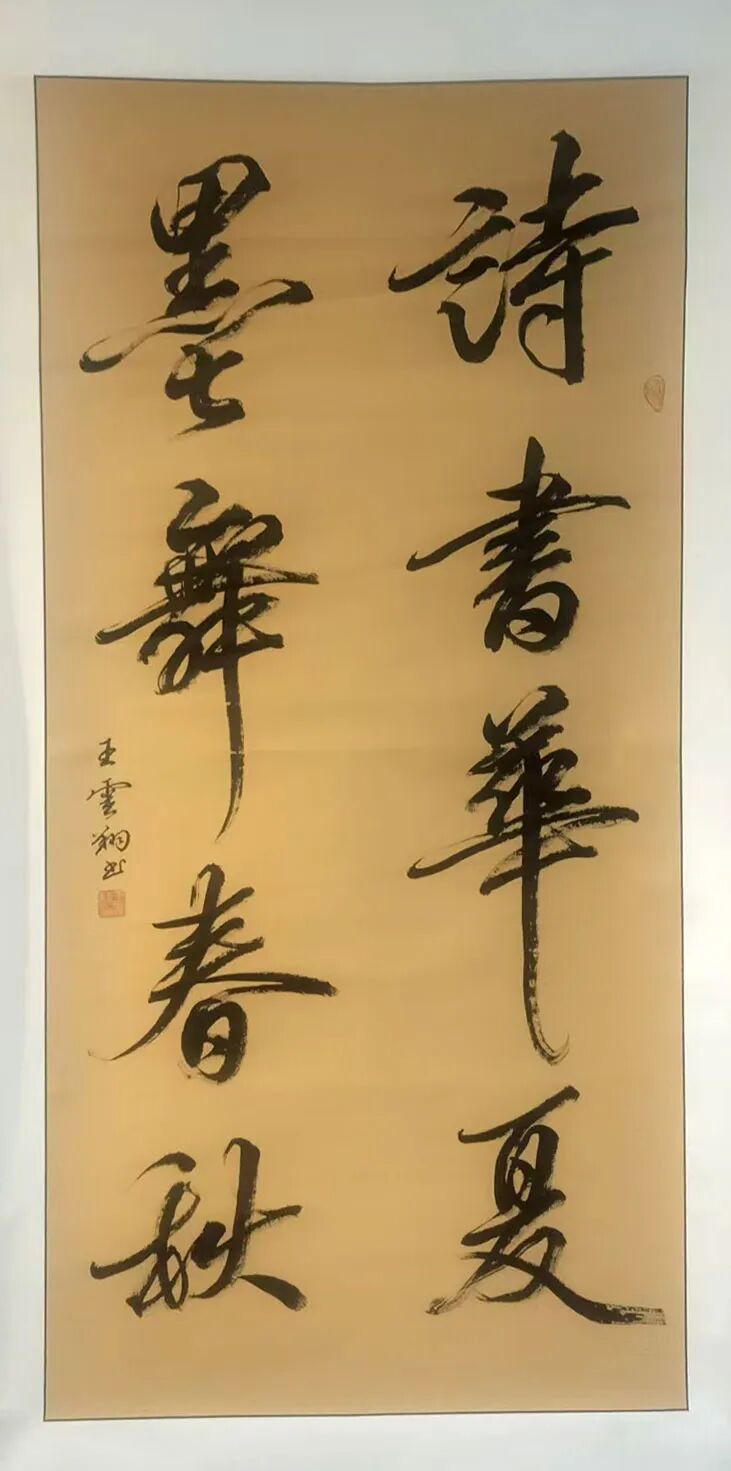 詩書華夏
墨舞春秋
王雲翔书